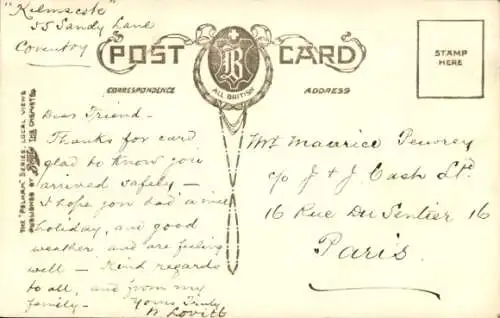 "Kelmscote"
55 Sandy Lane
Coventry
POST CARD
B
ALL BRITISH
CORRESPONDENCE
ADDRESS
STAMP
HERE
THE "PELHAM" SERIES, LOCAL VIEWS
PUBLISHED BY THE CHEMISTS
Dear Friend -
Thanks for card
glad to know you
arrived safely -
I hope you had a nice
holiday, and good
weather and are feeling
well - Kind regards
to all, and from my
family - Yours Truly
W. Lovitt
Mr Maurice
c/o J & J Cash Ltd
16 Rue Du Sentier 16
Paris.